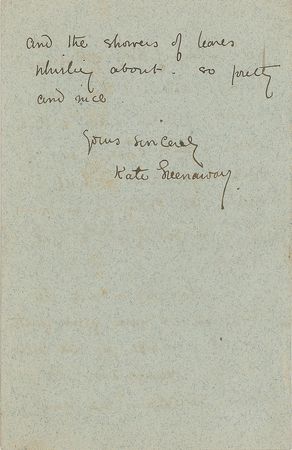 and the showers of leaves
whirling about. so pretty
and nice
Yours sincerely
Kate Greenaway.